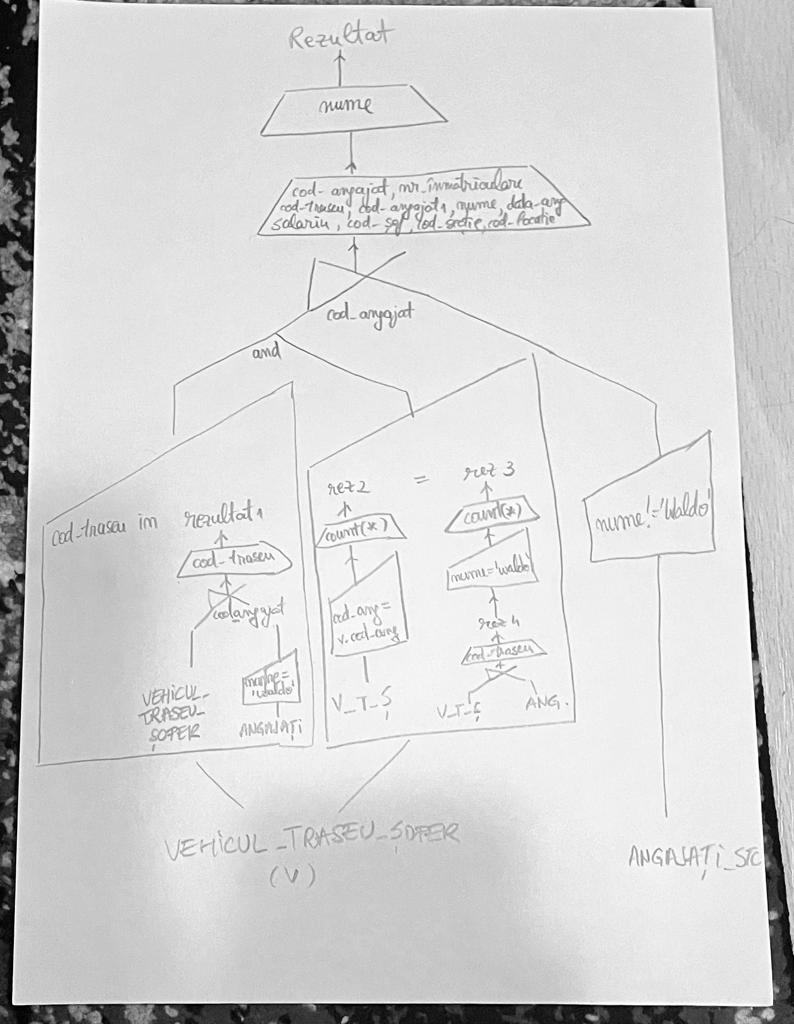 Rezultat
nume
cod-angajat, nr_inmatriculare
cod-traseu, cod-angajat1, nume, data-ang
salariu, cod-sef, cod-sectie, cod-locatie
cod_angajat
and
cod-traseu in rezultat1
cod-traseu
cod angajat
nume=
'waldo'
VEHICUL_
TRASEU_
ȘOFER
ANGAJAȚI
rez2 = rez3
count(*)
cod_ang=
v.cod-ang
V_T_Ș
count(*)
nume='waldo'
rez4
cod-traseu
V_T_Ș
ANG.
nume!='Waldo'
VEHICUL_TRASEU_ȘOFER
(V)
ANGAJAȚI_STC